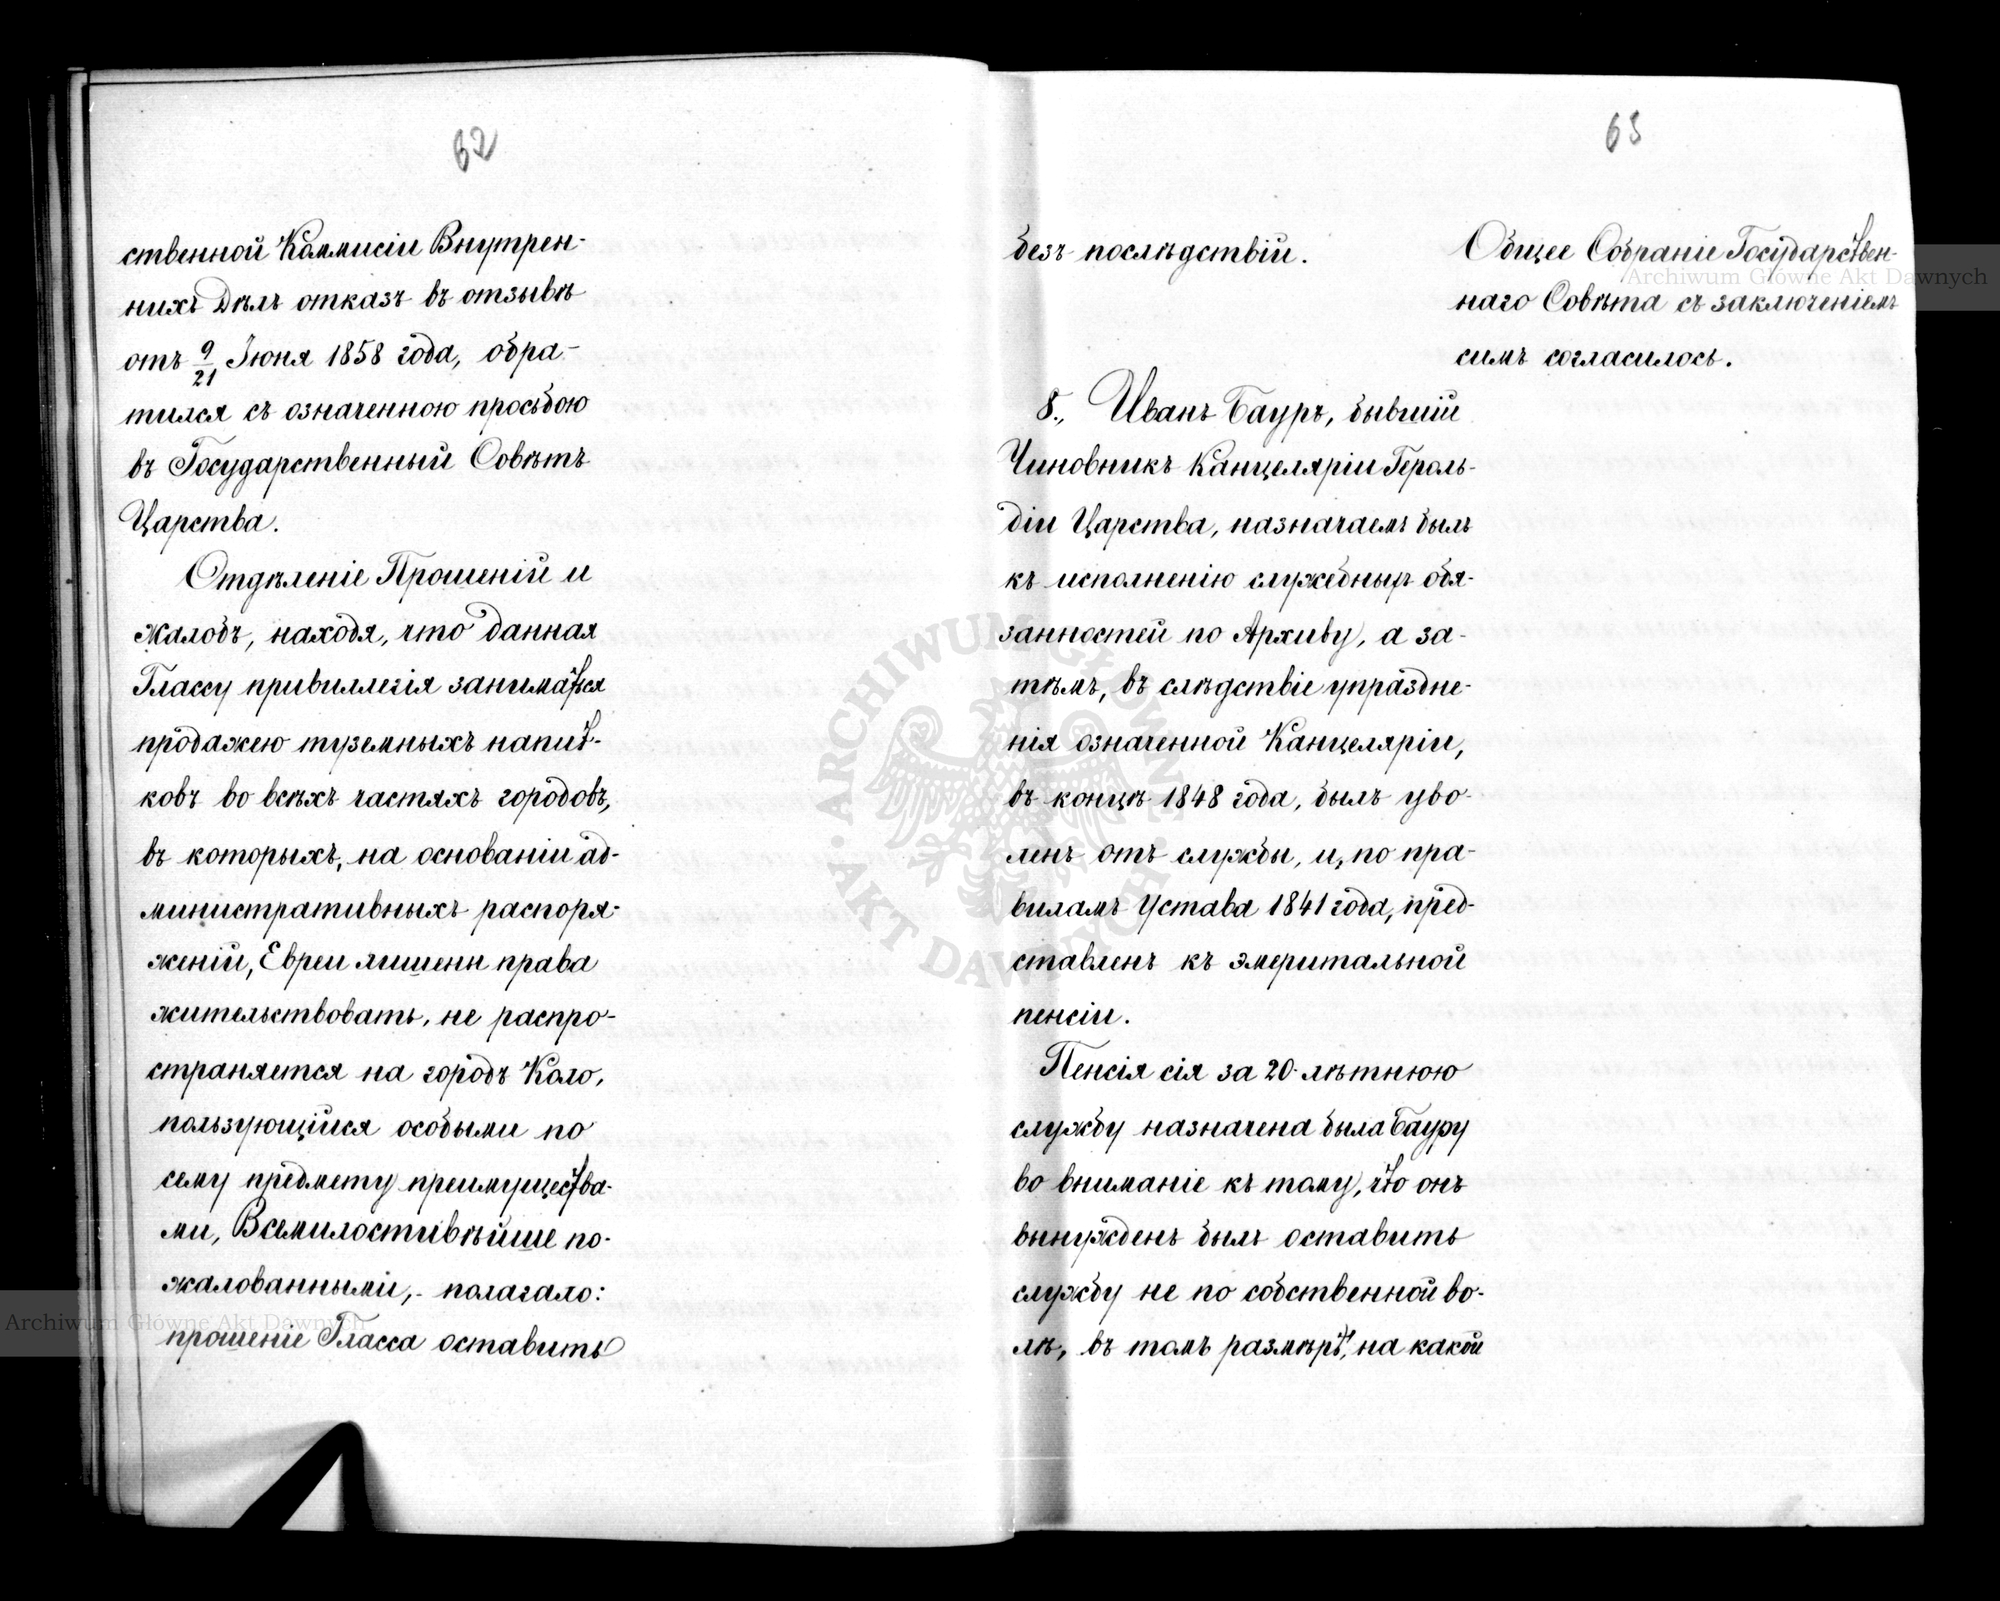 62
ственной Коммисіи Внутрен-
нихъ Дѣлъ отказъ въ отзывѣ
отъ 9/21 Іюня 1858 года, обра-
тился съ означенною просьбою
въ Государственный Совѣтъ
Царства.
Отдѣленіе Прошеній и
жалобъ, находя, что данная
Глассу привиллегія заниматься
продажею туземныхъ напит-
ковъ во всѣхъ частяхъ городовъ,
въ которыхъ, на основаніи ад-
министративныхъ распоря-
женій, Евреи лишены права
жительствовать, не распро-
страняется на городъ Коло,
пользующійся особыми по
сему предмету преимущества-
ми, Всемилостивѣйше по-
жалованными,- полагало:
прошеніе Гласса оставить
63
безъ послѣдствій.
Общее Собраніе Государствен-
наго Совѣта съ заключеніемъ
симъ согласилось.
8., Иванъ Бауръ, бывшій
Чиновникъ Канцеляріи Героль-
діи Царства, назначаемъ былъ
къ исполненію служебныхъ обя-
занностей по Архиву, а за-
тѣмъ, въ слѣдствіе упраздне-
нія означенной Канцеляріи,
въ концѣ 1848 года, былъ уво-
ленъ отъ службы, и, по пра-
виламъ Устава 1841 года, пред-
ставленъ къ эмеритальной
пенсіи.
Пенсія сія за 20-лѣтнюю
службу назначена была Бауру
во вниманіе къ тому, что онъ
вынужденъ былъ оставить
службу не по собственной во-
лѣ, въ томъ размѣрѣ, на какой
Archiwum Główne Akt Dawnych
Archiwum Główne Akt Dawnych
ARCHIWUM GŁÓWNE · AKT DAWNYCH ·